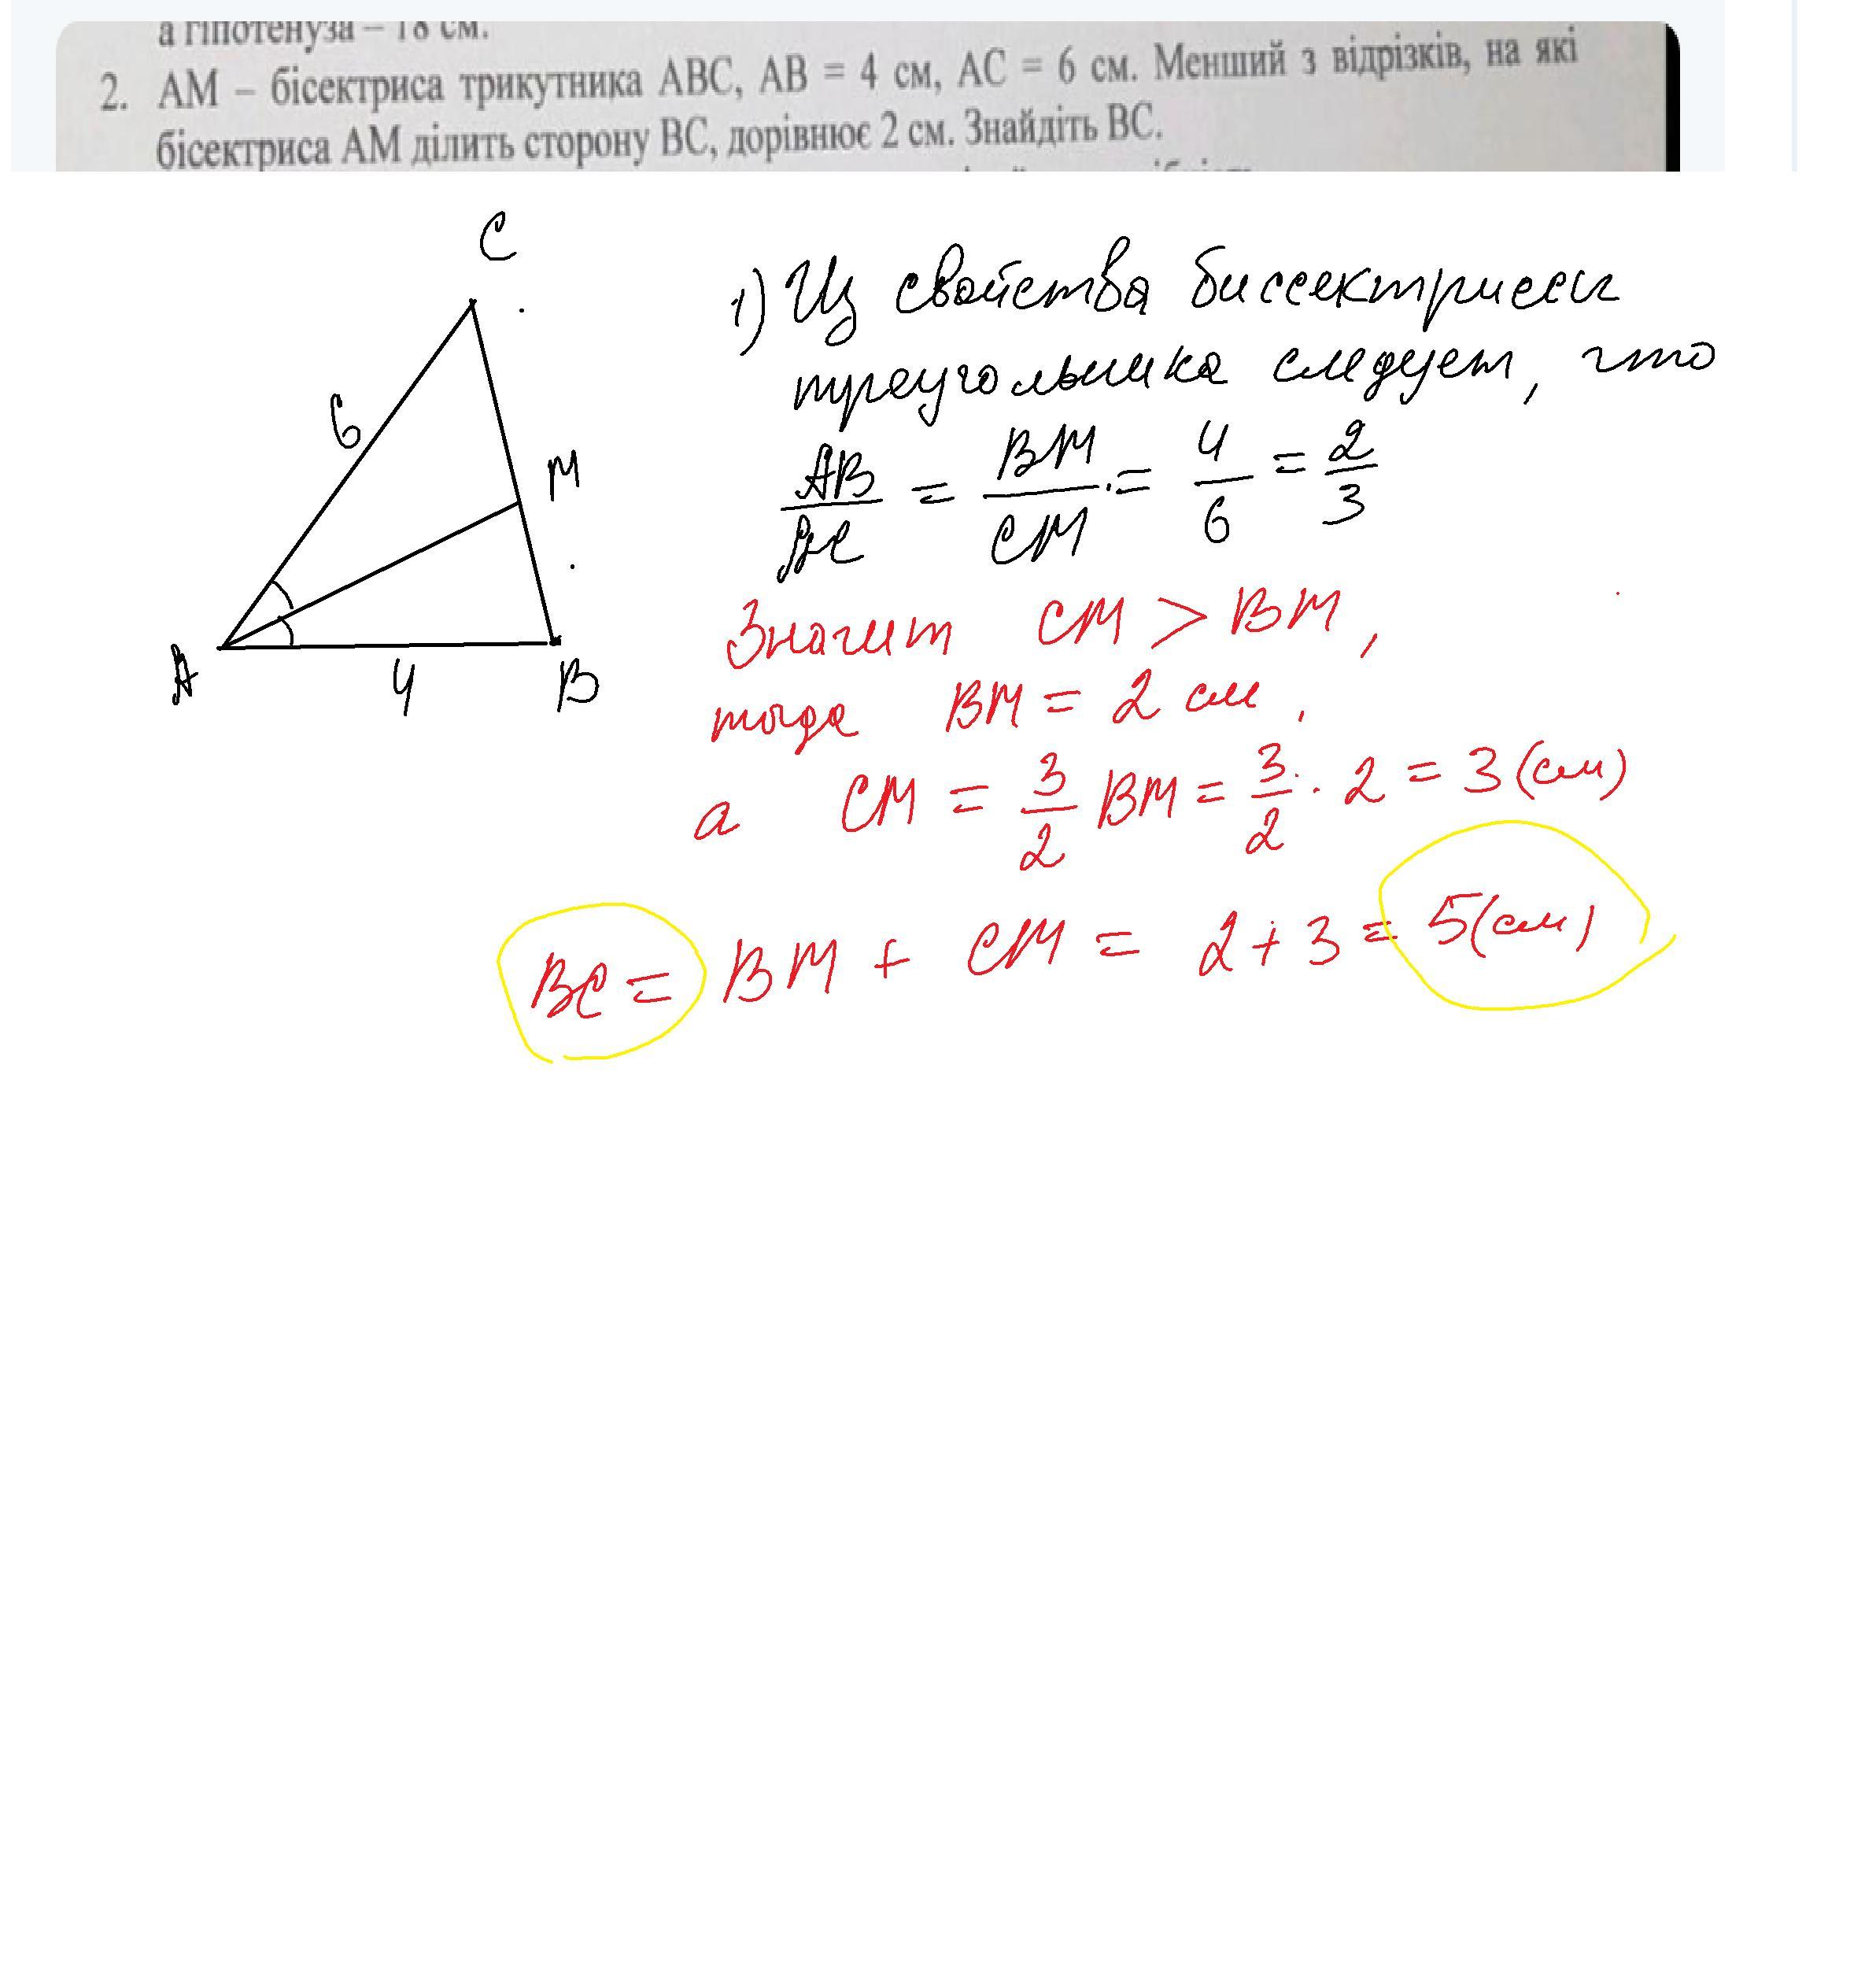 а гіпотенуза – 18 см.
2. АМ – бісектриса трикутника АВС, АВ = 4 см, АС = 6 см. Менший з відрізків, на які
бісектриса АМ ділить сторону ВС, дорівнює 2 см. Знайдіть ВС.
C
6
M
A
4
B
1) Из свойства биссектриссы
треугольника следует, что
AB/AC = BM/CM = 4/6 = 2/3
Значит CM > BM,
тогда BM = 2 см,
а CM = 3/2 BM = 3/2 · 2 = 3 (см)
BC = BM + CM = 2 + 3 = 5 (см)